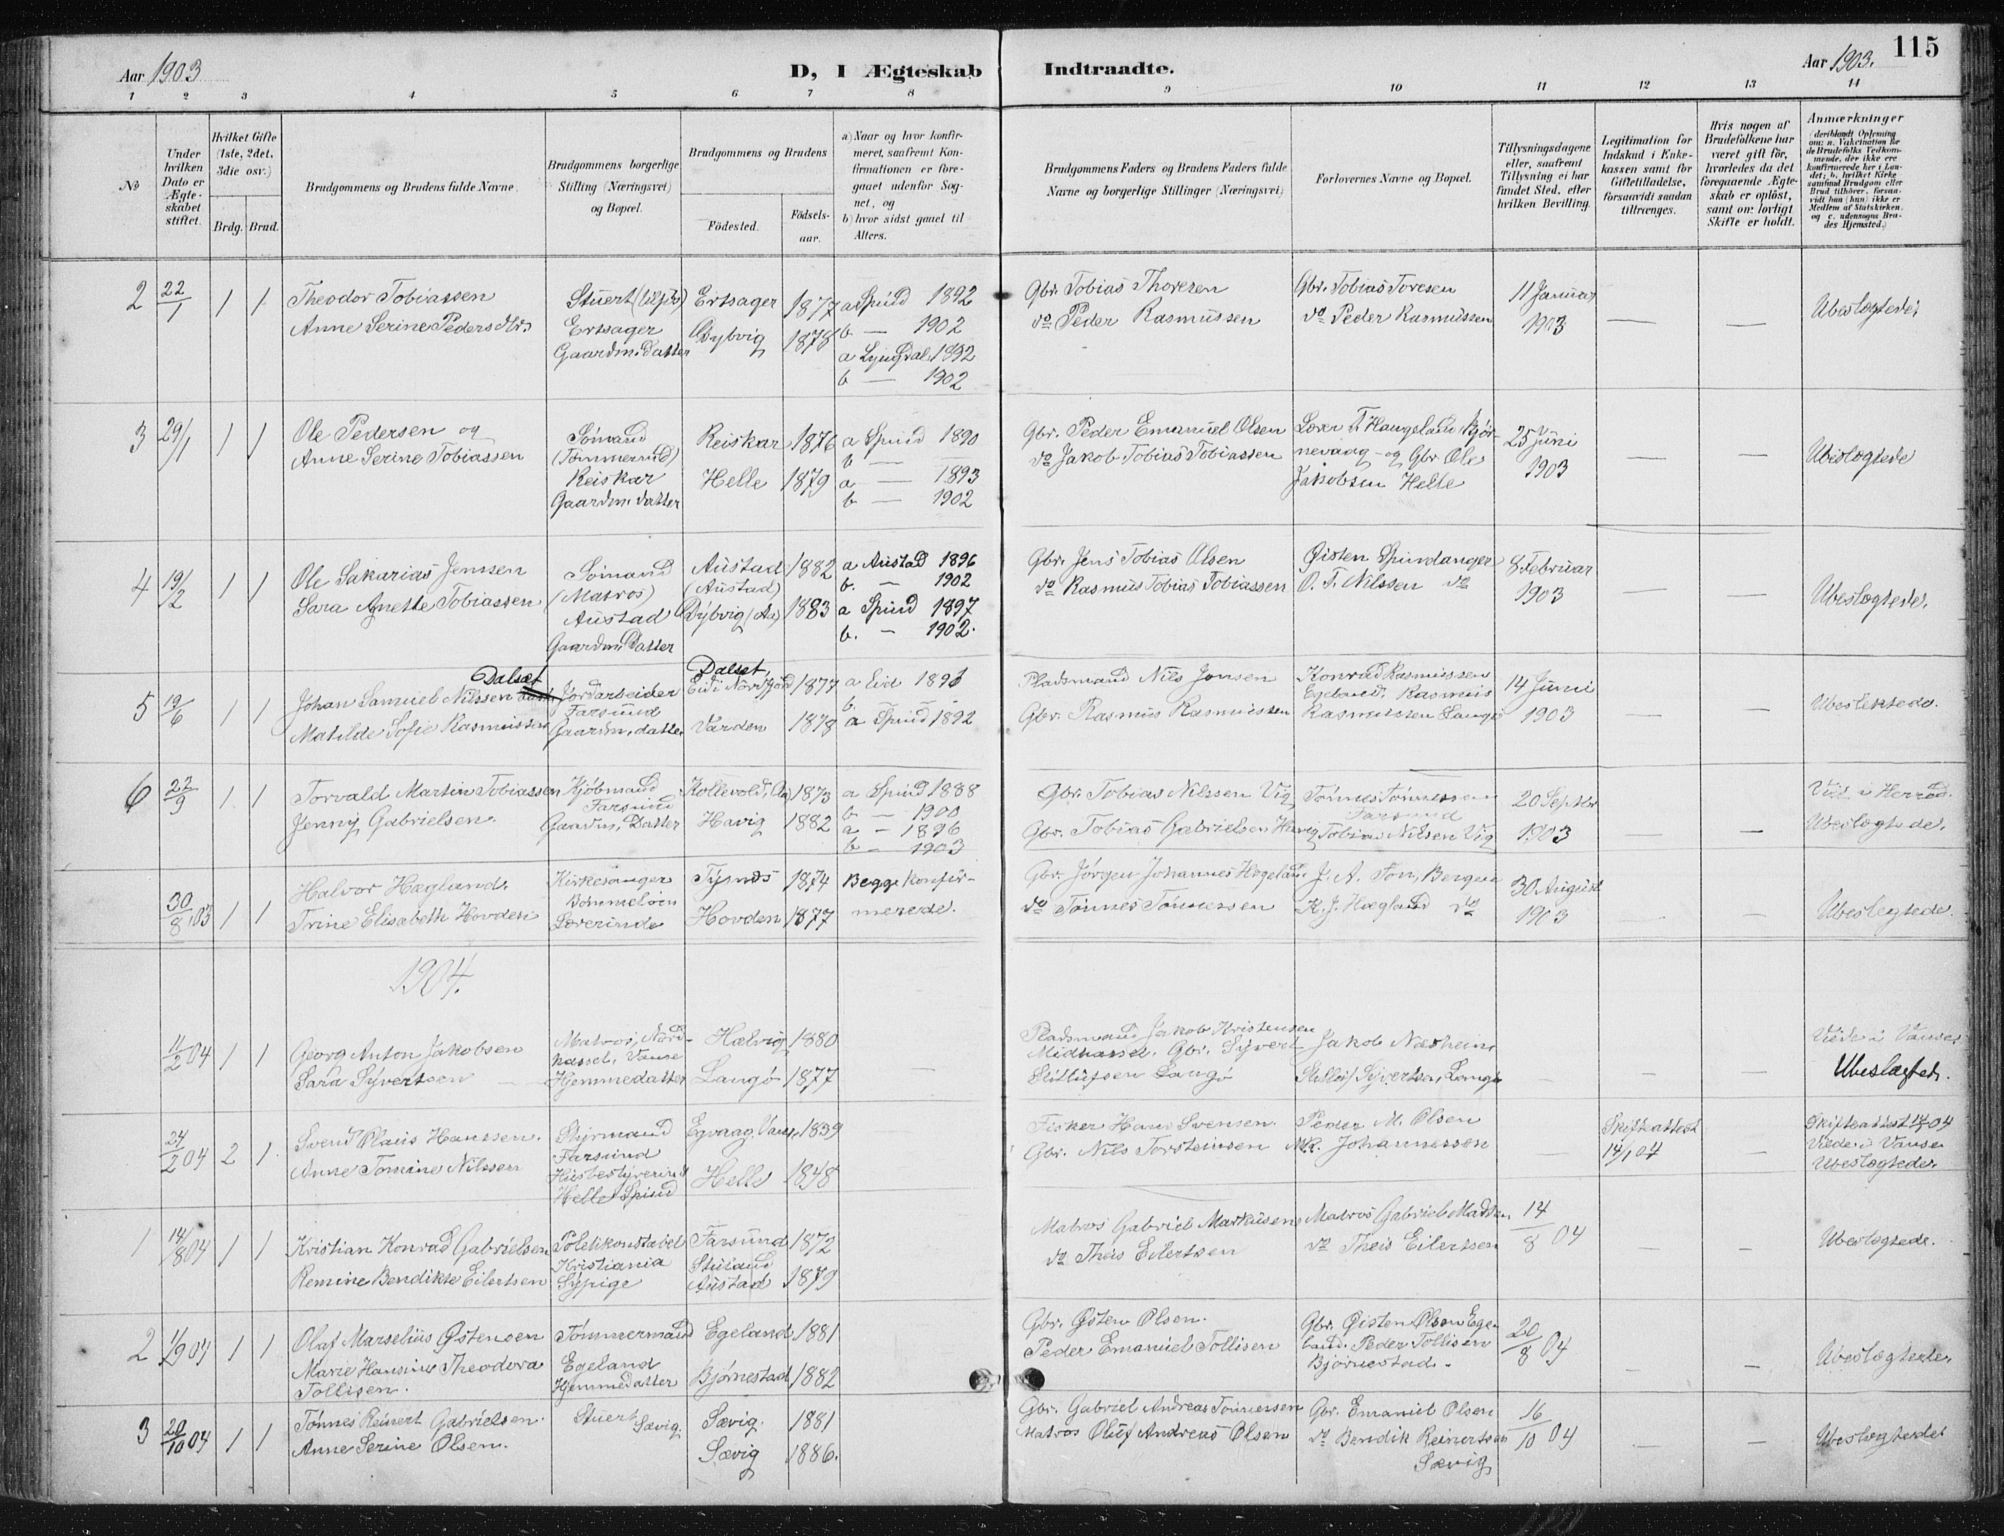 Aar 1903
D, I Ægteskab Indtraadte.
Aar 1903. 115
1 2 3 4 5 6 7 8 9 10 11 12 13 14
No
Under hvilken Dato er Ægteskabet stiftet.
Hvilket Gifte (1ste, 2det, 3die osv.)
Brdg. Brud.
Brudgommens og Brudens fulde Navne.
Brudgommens borgerlige Stilling (Næringsvei) og Bopæl.
Brudgommens og Brudens
Fødested.
Fødselsaar.
a) Naar og hvor konfirmeret, saafremt Konfirmationen er foregaaet udenfor Sognet, og
b) hvor sidst gaaet til Alters.
Brudgommens Faders og Brudens Faders fulde Navne og borgerlige Stillinger (Næringsvei)
Forlovernes Navne og Bopæl.
Tillysningsdagene eller, saafremt Tillysning ei har fundet Sted, efter hvilken Bevilling.
Legitimation for Indskud i Enkekassen samt for Giftetilladelse, forsaavidt saadan tiltrænges.
Hvis nogen af Brudefolkene har været gift før, hvorledes da det foregaaende Ægteskab er opløst, samt om lovligt Skifte er holdt.
Anmærkninger
2 22/1 1 1 Theodor Tobiassen Stuert Ertsager 1877 a Spind 1892 Gbr. Tobias Thoresen Gbr. Tobias Toresen 11 Januar — — Ubeslægtede
Anne Serine Pedersdtr. Ertsager Dybvig 1878 b — 1902 do Peder Rasmussen do Peder Rasmussen 1903
Gaardm. Datter a Lyngdal 1892
b — 1902
3 29/1 1 1 Ole Pedersen og Sømand Reiskar 1876 a Spind 1890 Gbr. Peder Emanuel Olsen Lærer T. Haugeland Bjør- 25 Juni — — Ubeslægtede
Anne Serine Tobiassen (Tømmermd) b — do Jakob Tobias Tobiassen nevaag og Gbr. Ole 1903
Reiskar Helle 1879 a — 1893 Jakobsen Helle
Gaardm. datter b — 1902
4 19/2 1 1 Ole Sakarias Jensen Sømand Austad 1882 a Austad 1896 Gbr. Jens Tobias Olsen Øisten Spindanger 8 Februar — — Ubeslægtede.
Sara Anette Tobiassen (Matros) (Austad) b. — 1902 do Rasmus Tobias Tobiassen O. T. Nilssen do 1903
Austad Dybvig 1883 a Spind 1897
Gaardm. Datter b. — 1902.
5 19/6 1 1 Johan Samuel Nilssen Dalset Jordarbeider Dalset, Eid i Nordfjord 1877 a Eid 1891 Pladsmand Nils Jonsen Konrad Rasmussen 14 Juni — — Ubeslektede.
Farsund b. Egeland, Rasmus
Matilde Sofie Rasmussen Gaardm. datter Varden 1878 a Spind 1892 Gbr. Rasmus Rasmussen Rasmussen 1903
6 22/9 1 1 Torvald Martin Tobiassen Kjøbmand Kollevold 1873 a Spind 1888 Gbr. Tobias Nilssen Vig Tønnes Tønnessen 20 Septbr — — Viet i Herred.
Farsund b — 1900 Farsund
Jenny Gabrielsen. Gaardm. Datter Havig 1882 a — 1896 Gbr. Tobias Gabrielsen Havig Tobias Nilsen Vig 1903 Ubeslægtede.
b — 1903
30/8 03 1 1 Halvor Hægland. Kirkesanger Tysnes 1874 Begge konfir- Gbr Jørgen Johannes Bergen 30 August — — Ubeslægtede.
Bømmeløen
Trine Elisabeth Hovden Lærerinde Hovden 1877 merede. do Tønnes Tønnessen K. J. Hægland do 1903
1904.
11/2 04 1 1 Georg Anton Jakobsen Matros, Nord- Hælvig 1880 — Pladsmand Jakob Kristensen Jakob Næsheim — — — Viede i Vanse
hassel. Vanse Midhassel. Gbr. Syvert
Sara Syvertsen Hjemmedatter Langø 1877 Langø Syvertsen, Langø Ubeslægtede.
24/2 04 2 1 Svend Hanssen. Styrmand Egvaag, Vanse 1839 Fisker Hans Svensen. Peder M. Olsen — Skifteattest — Skifteattest 14/1 04
Farsund 14/1 04 Viede i Vanse
Anne Tomine Nilssen Husbestyrerind Helle 1848 Gbr. Nils Torsteinsen Johannessen Ubeslægtede.
Helle Spind
1 14/8 04 1 1 Kristian Konrad Gabrielsen Politikonstabel Farsund 1872 Matros Gabriel Markusen Matros Gabriel 14/8 04 — — Ubeslægtede.
Kristiania
Remine Bendikte Eilertsen Sypige Austad 1879 do Theis Eilertsen do Theis Eilertsen
2 1/9 04 1 1 Olaf Marselius Østensen Tømmermand Egeland 1881 Gbr. Østen Olsen. Gbr. Øisten Olsen Ege- 20/8 04 — — Ubeslægtede.
Marie Hansine Theodora Egeland Bjørnestad 1882 Peder Emanuel Tollisen land. Peder Tollisen
Tollisen. Hjemmedatter Bjørnestad.
3 20/10 04 1 1 Tønnes Reinert Gabrielsen. Stuert Sævig. Sævig. 1881 Gbr. Gabriel Andreas Tønnessen Gbr. Emaniel Olsen 16/10 04 — — Ubeslægtede
Anne Serine Olsen. Sævig 1886. Matros Oluf Andreas Olsen do Bendik Reinertsen
Sævig